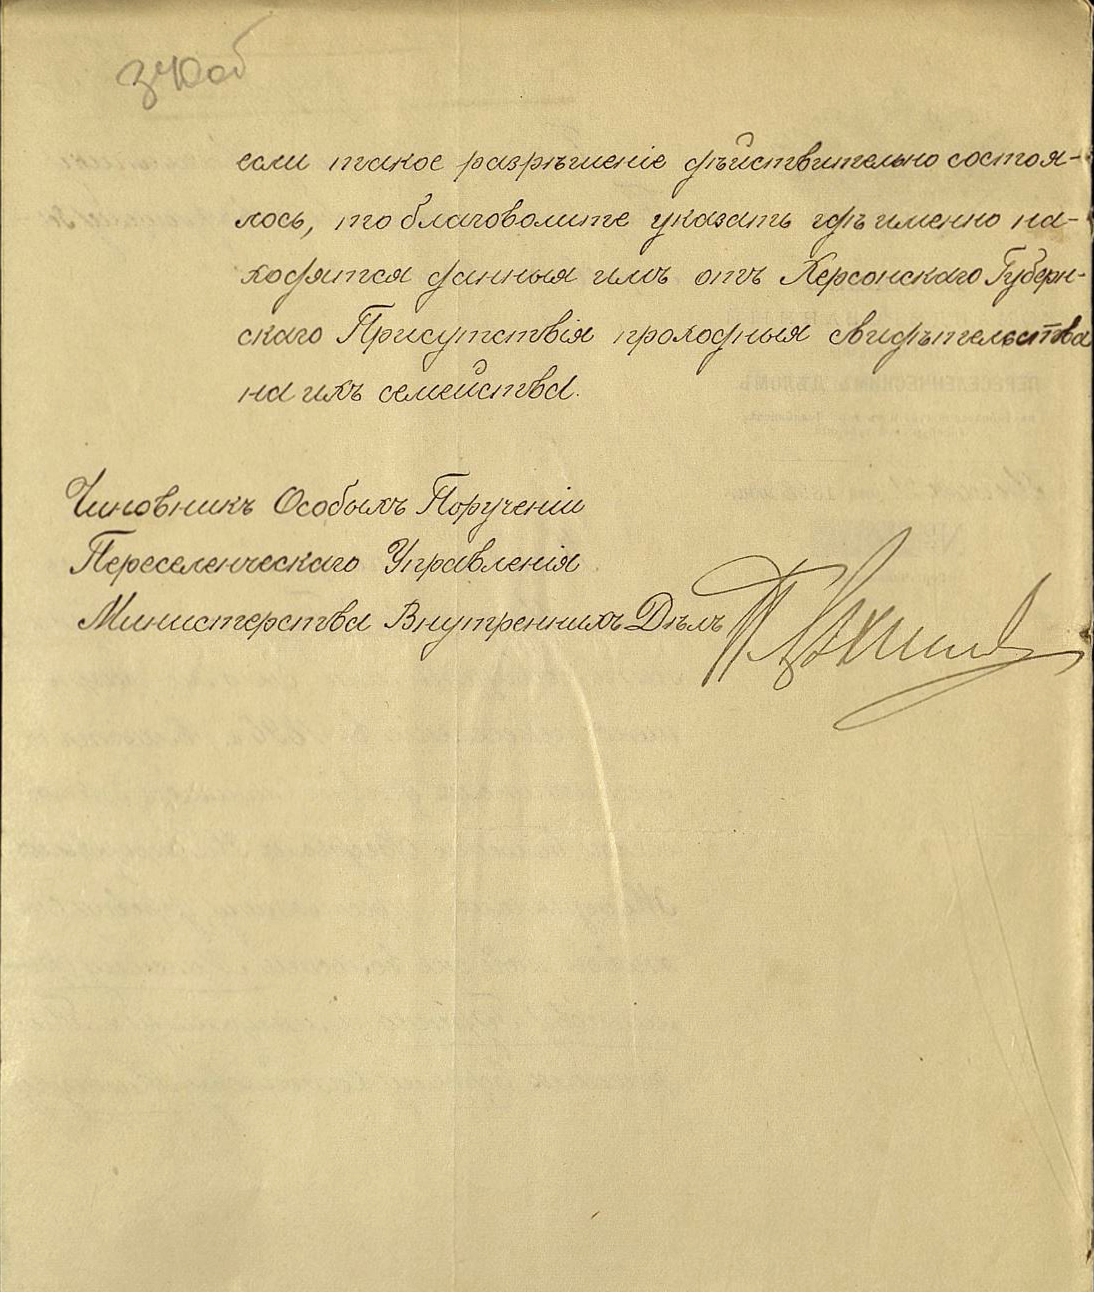 если такое разрѣшеніе дѣйствительно состоя-
лось, то благоволите указать гдѣ именно на-
ходятся данныя имъ отъ Херсонскаго Губерн-
скаго Присутствія проходныя свидѣтельства
на ихъ семейства.
Чиновникъ Особыхъ Порученій
Переселенческаго Управленія
Министерства Внутреннихъ Дѣлъ